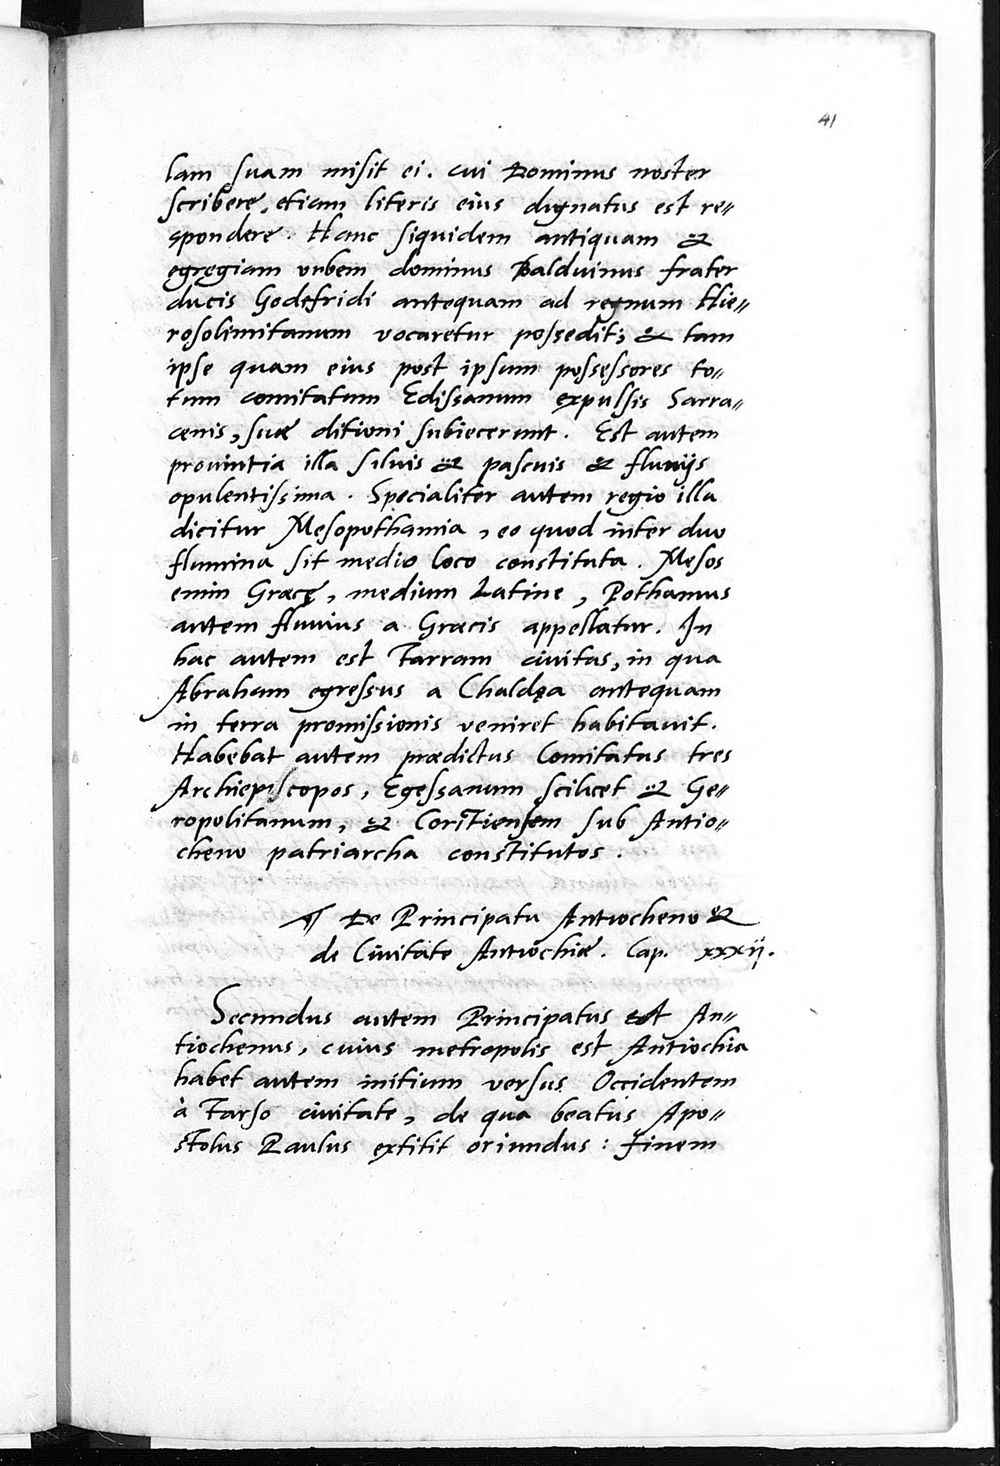 41
lam suam misit ei. cui Dominus noster
scribere, etiam literis eius dignatus est re„
spondere. Hanc siquidem antiquam &
egregiam urbem dominus Balduinus frater
ducis Godefridi antequam ad regnum Hie„
rosolimitanum vocaretur possedit; & tam
ipse quam eius post ipsum possessores to„
tum comitatum Edissanum expulsis Sarra„
cenis, suæ ditioni subiecerunt. Est autem
provintia illa siluis & pascuis & fluuijs
opulentissima. Specialiter autem regio illa
dicitur Mesopothamia, eo quod inter duo
flumina sit medio loco constituta. Mesos
enim Græcę, medium Latine, Pothamus
autem fluuius a Græcis appellatur. In
hac autem est Farram ciuitas, in qua
Abraham egressus a Chaldęa antequam
in terra promissionis veniret habitauit.
Habebat autem prædictus Comitatus tres
Archiepiscopos, Egessanum scilicet & Ge„
ropolitanum, & Coritiensem sub Antio„
cheno patriarcha constitutos.
¶ De Principatu Antiocheno &
de Ciuitate Antiochiæ. Cap. xxxij.
Secundus autem Principatus est An„
tiochenus, cuius metropolis est Antiochia
habet autem initium versus Occidentem
à Tarso ciuitate, de qua beatus Apo„
stolus Paulus extitit oriundus: Finem